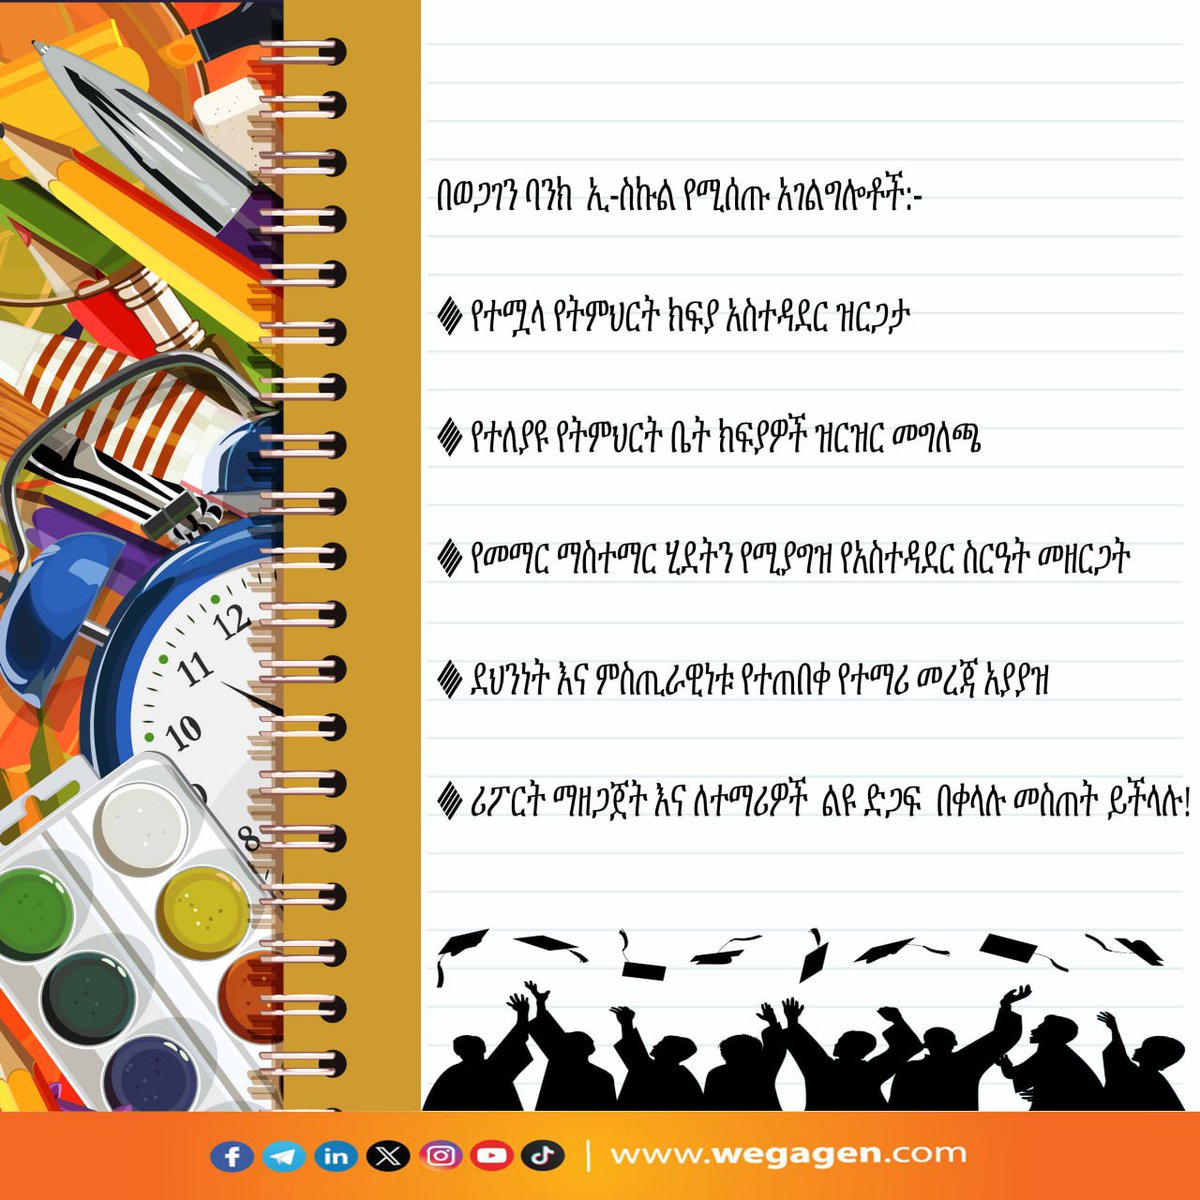 በወጋገን ባንክ ኢ-ስኩል የሚሰጡ አገልግሎቶች:-
የተሟላ የትምህርት ክፍያ አስተዳደር ዝርጋታ
የተለያዩ የትምህርት ቤት ክፍያዎች ዝርዝር መግለጫ
የመማር ማስተማር ሂደትን የሚያግዝ የአስተዳደር ስርዓት መዘርጋት
ደህንነት እና ምስጢራዊነቱ የተጠበቀ የተማሪ መረጃ አያያዝ
ሪፖርት ማዘጋጀት እና ለተማሪዎች ልዩ ድጋፍ በቀላሉ መስጠት ይችላሉ!
12
11
10
9
8
| www.wegagen.com